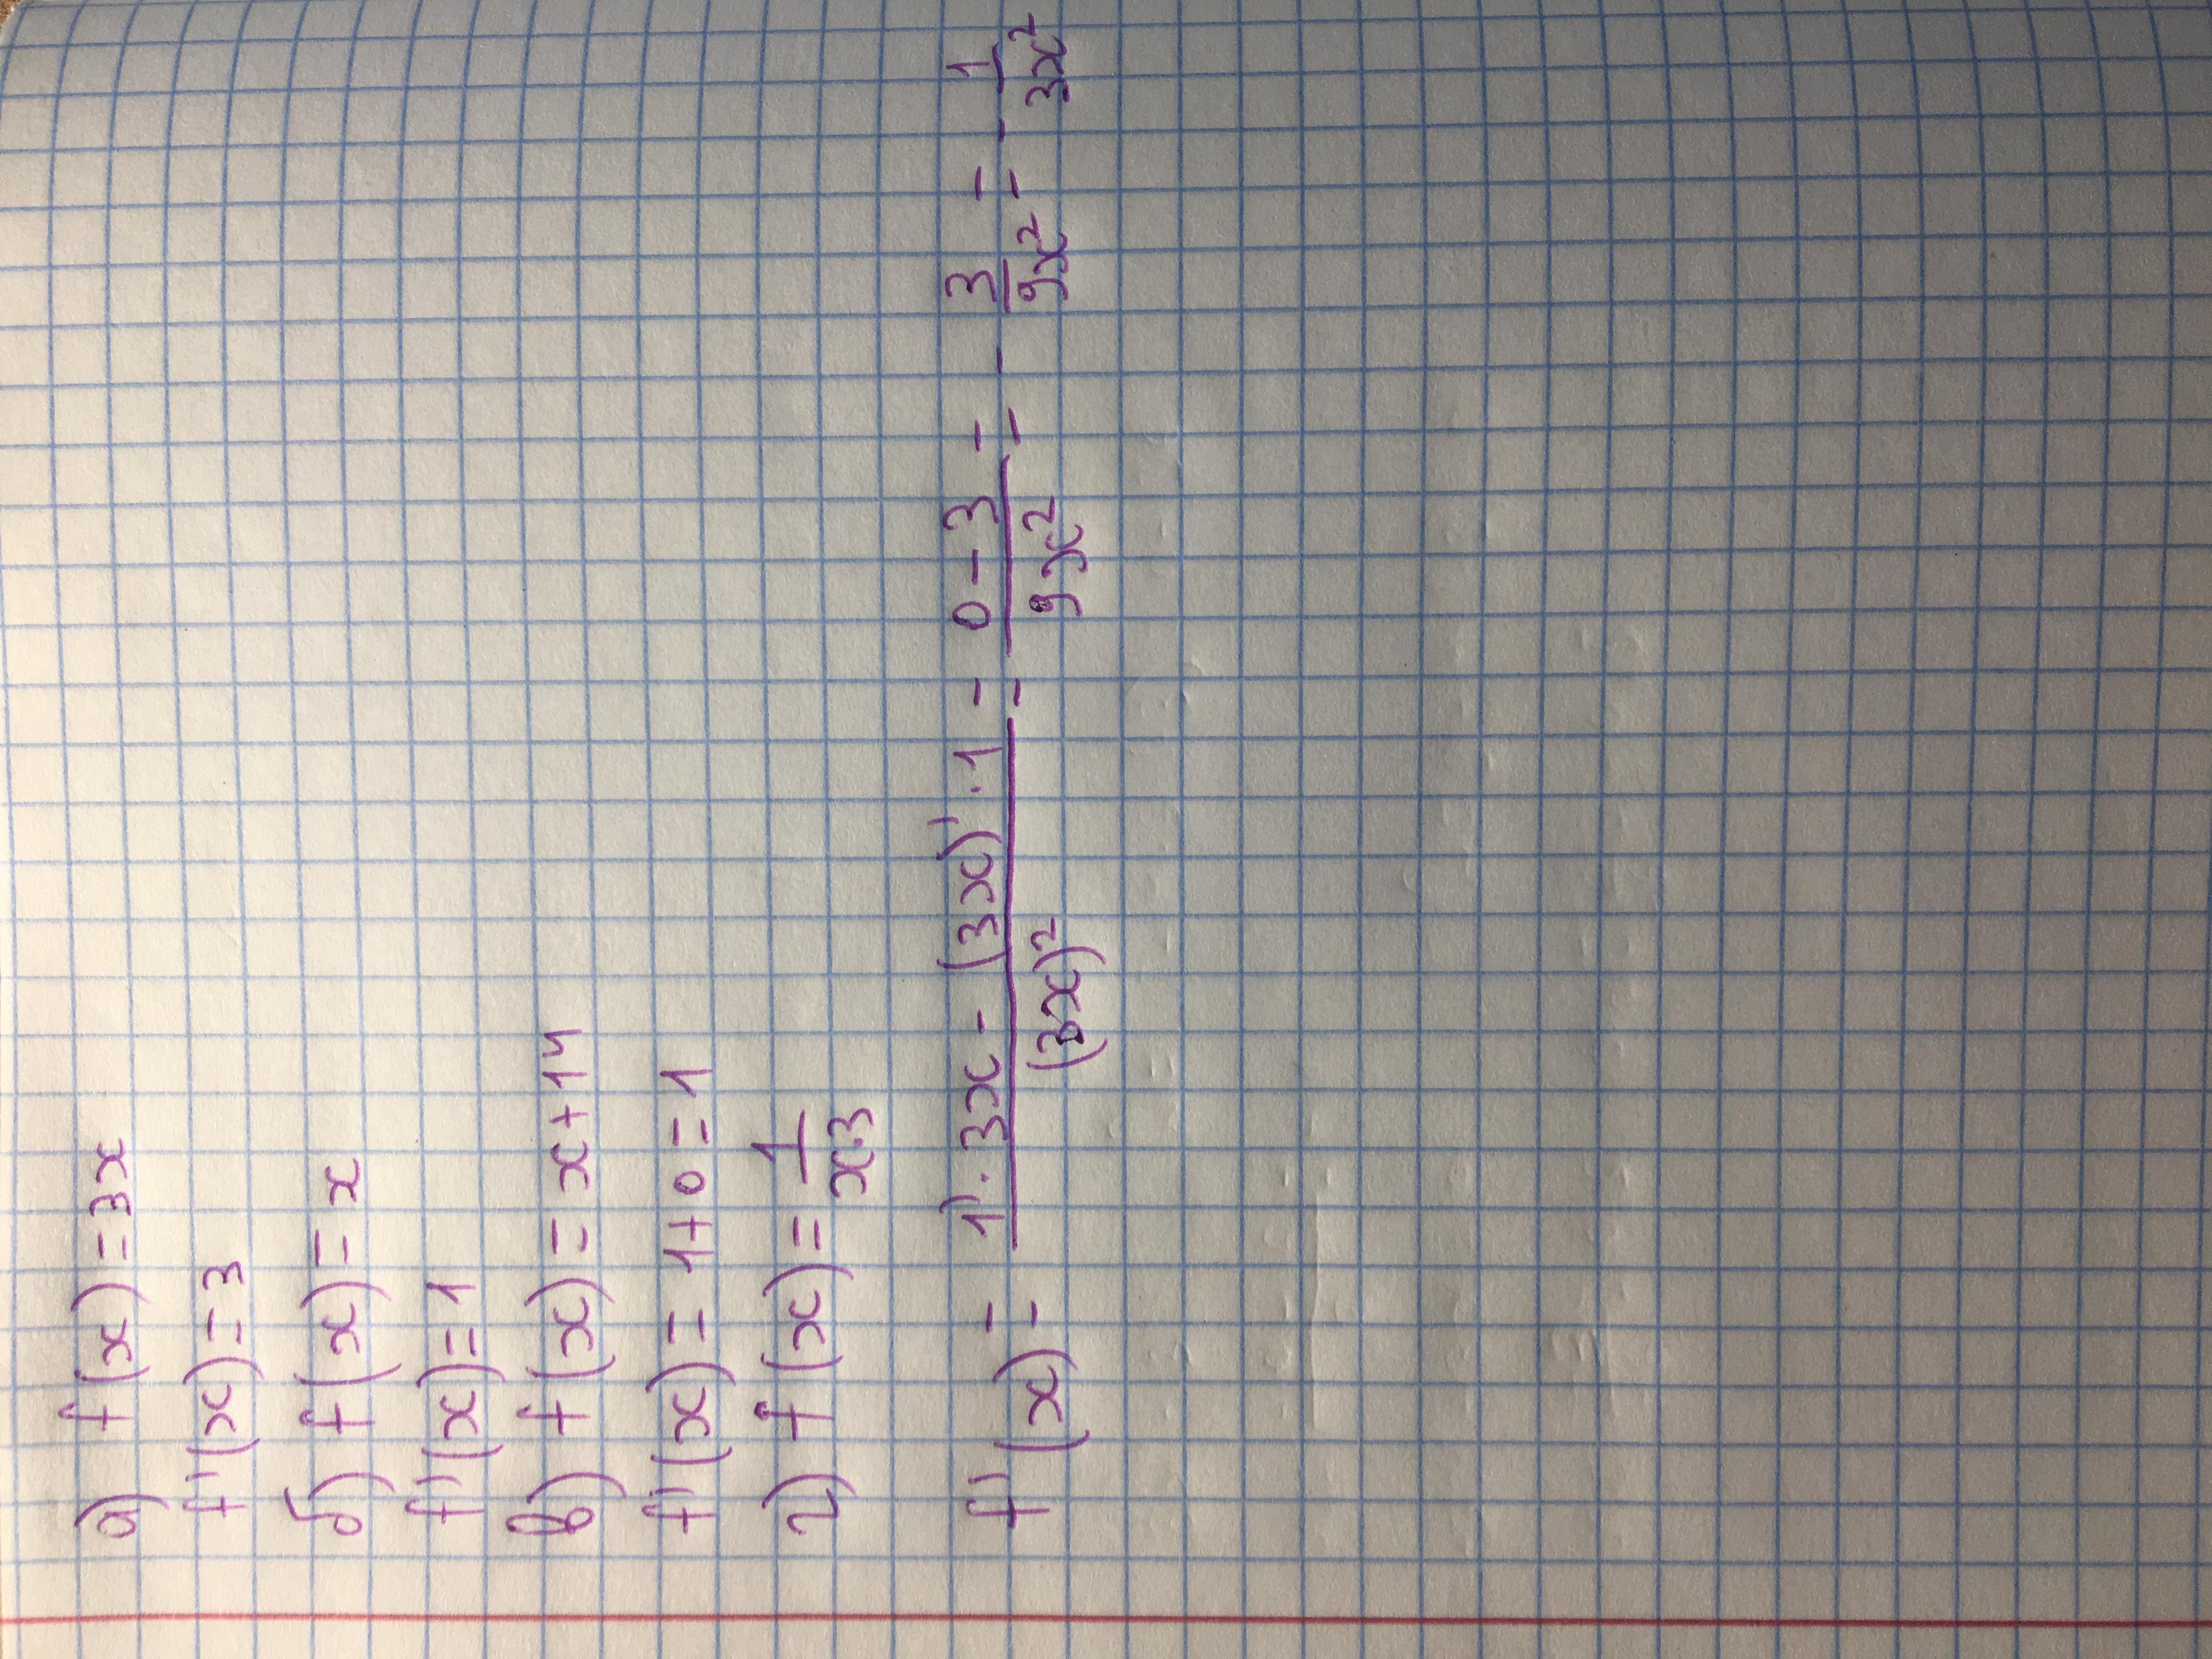 а) f(x)=3x
f'(x)=3
б) f(x)=x
f'(x)=1
в) f(x)=x+14
f'(x)=1+0=1
г) f(x)=1/(x·3)
f'(x)=(1'·3x-(3x)'·1)/(3x)²=(0-3)/(9x²)=-3/(9x²)=-1/(3x²)